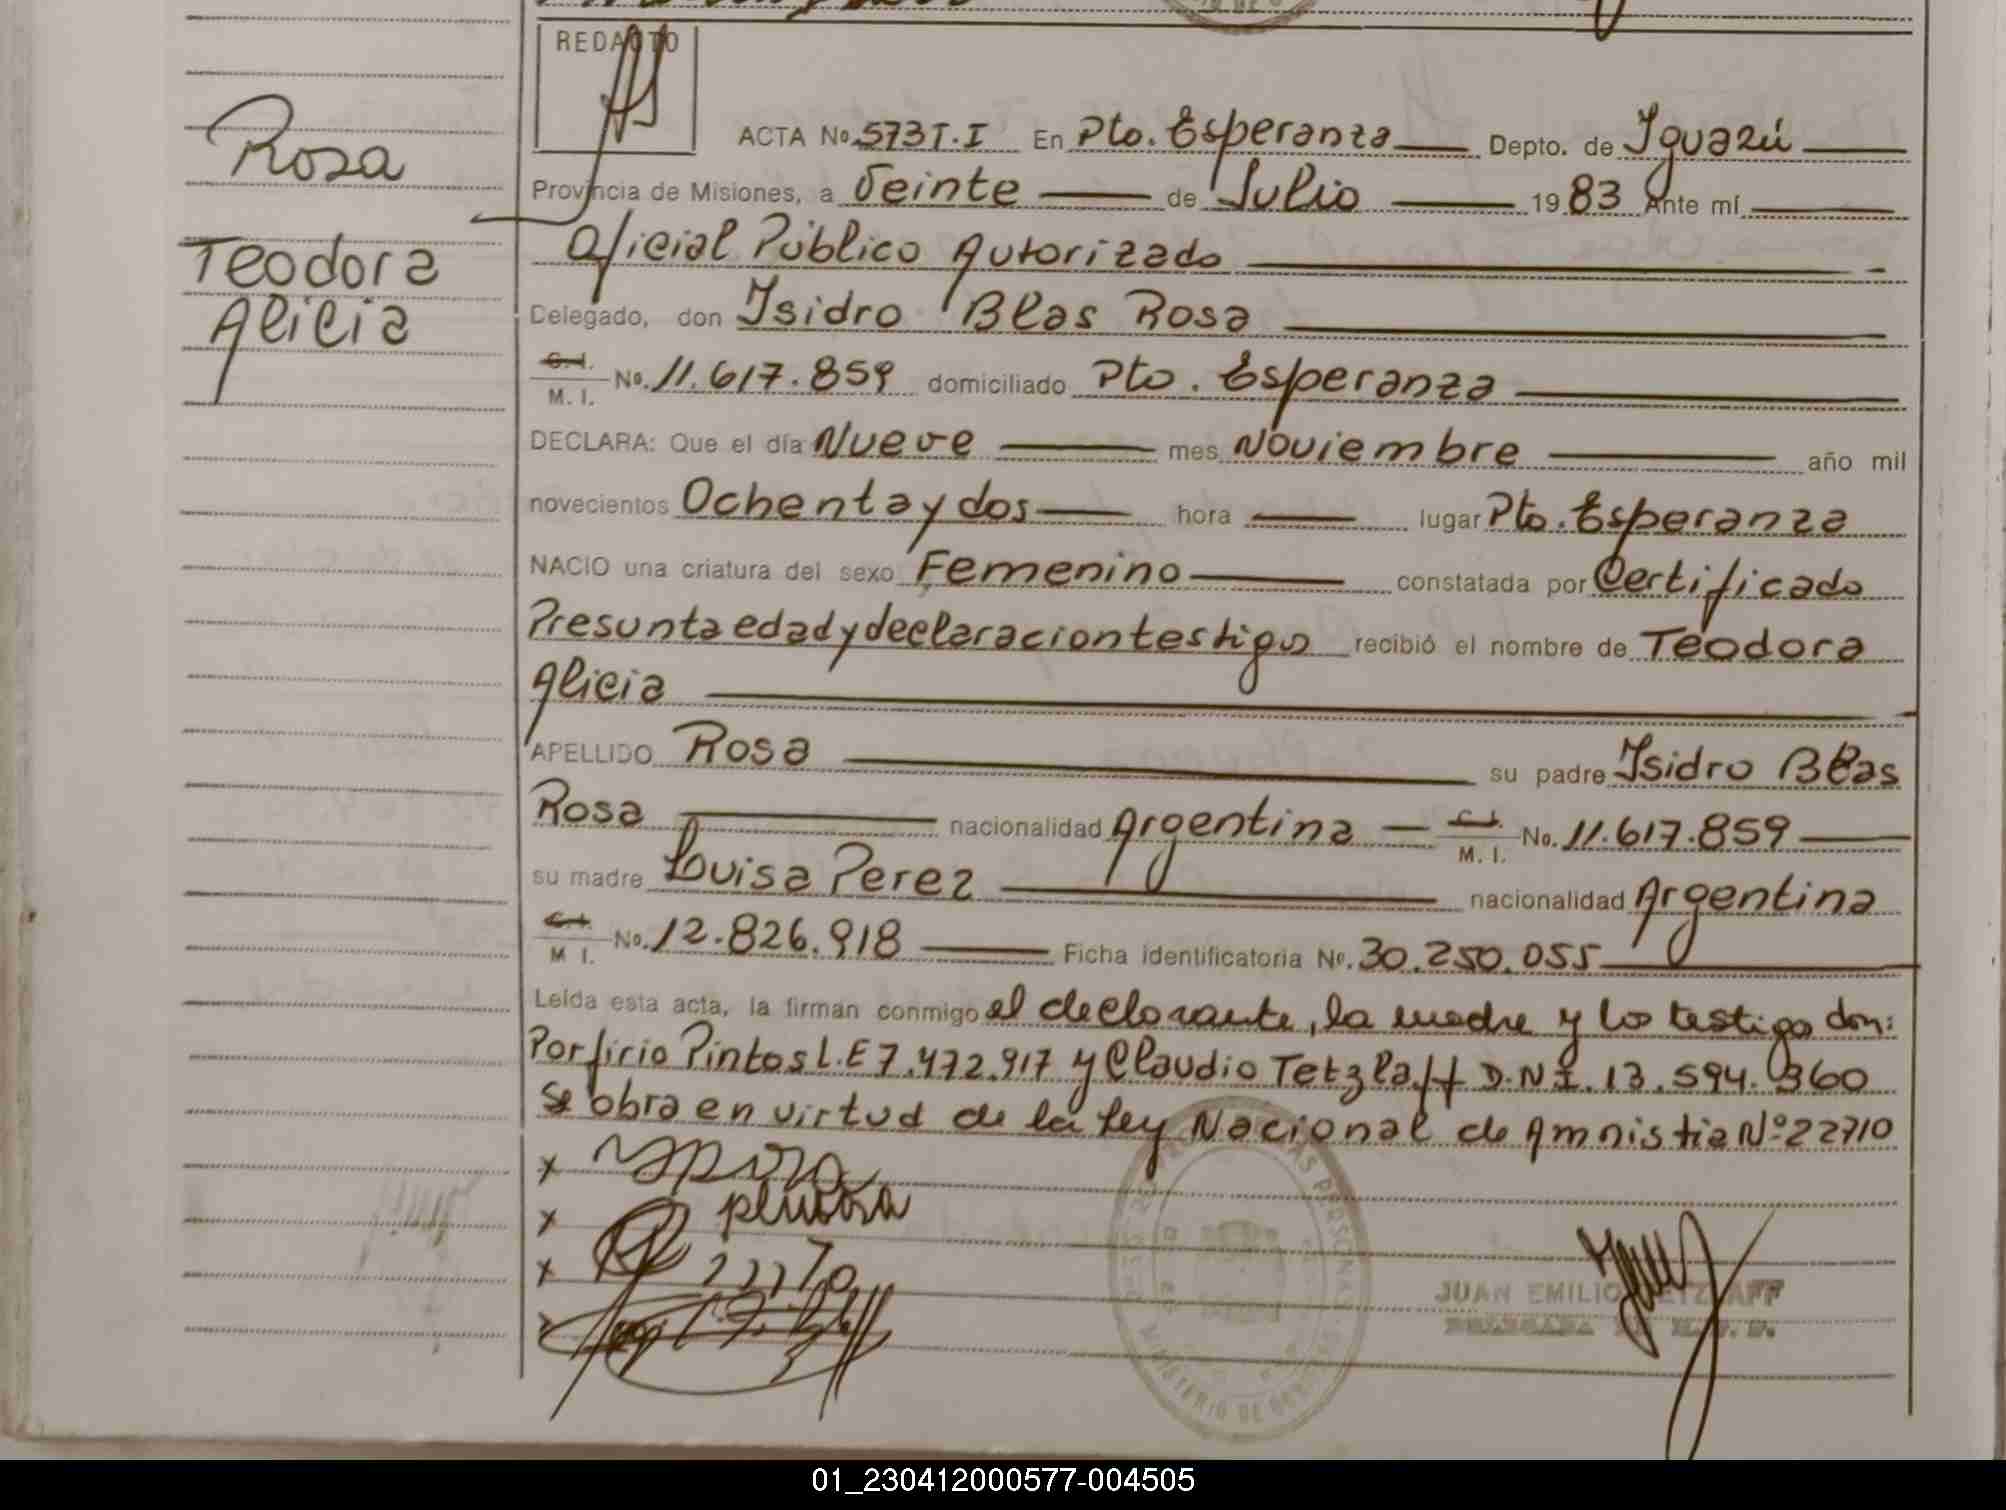 REDACTO
Rosa
Teodora
Alicia
ACTA No. 573 T.I En Pto. Esperanza Depto. de Iguazú
Provincia de Misiones, a Veinte de Julio 1983 Ante mí
Oficial Público Autorizado
Delegado, don Isidro Blas Rosa
C.I. M. I. No. 11.617.859 domiciliado Pto. Esperanza
DECLARA: Que el día Nueve mes Noviembre año mil
novecientos Ochenta y dos hora lugar Pto. Esperanza
NACIO una criatura del sexo Femenino constatada por Certificado
Presunta edad y declaracion testigo recibió el nombre de Teodora
Alicia
APELLIDO Rosa su padre Isidro Blas
Rosa nacionalidad Argentina C.I. M. I. No. 11.617.859
su madre Luisa Perez nacionalidad Argentina
C.I. M I. No. 12.826.918 Ficha identificatoria No. 30.250.055
Leída esta acta, la firman conmigo el declarante, la madre y los testigo don:
Porfirio Pintos L.E 7.472.917 y Claudio Tetzlaff D.N.I. 13.594.360
Se obra en virtud de la Ley Nacional de Amnistia Nº 22710
x
x
x
JUAN EMILIO TETZLAFF
MINISTERIO DE
01_230412000577-004505